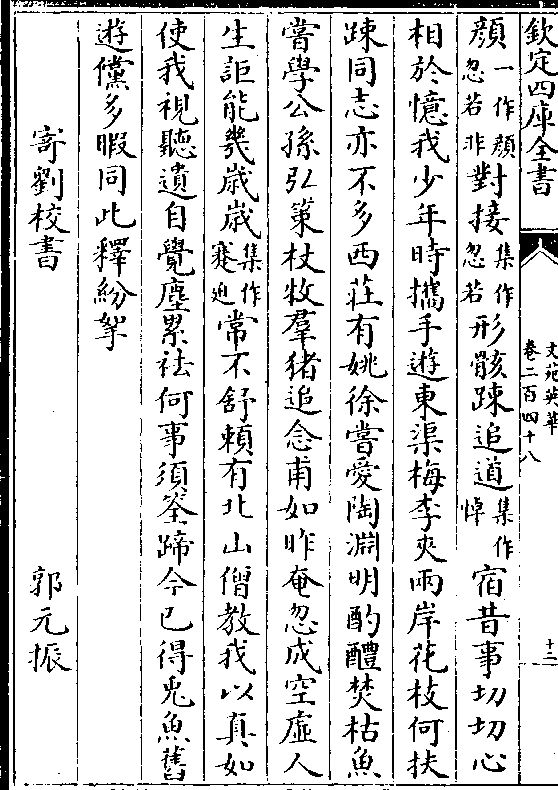 欽定四庫全書
文苑英華
卷二百四十八
十二
顔一作顔忽若非對接集作忽若形骸踈追道集作悼宿昔事切切心
相於憶我少年時攜手遊東渠梅李夾兩岸花枝何扶
踈同志亦不多西莊有姚徐嘗愛陶淵明酌醴焚枯魚
嘗學公孫弘策杖牧羣豬追念甫如昨奄忽成空虛人
生詎能幾歳歳集作蹇迫常不舒賴有北山僧教我以真如
使我視聽遺自覺塵累祛何事須筌蹄今已得兎魚舊
遊儻多暇同此釋紛挐
寄劉校書
郭元振